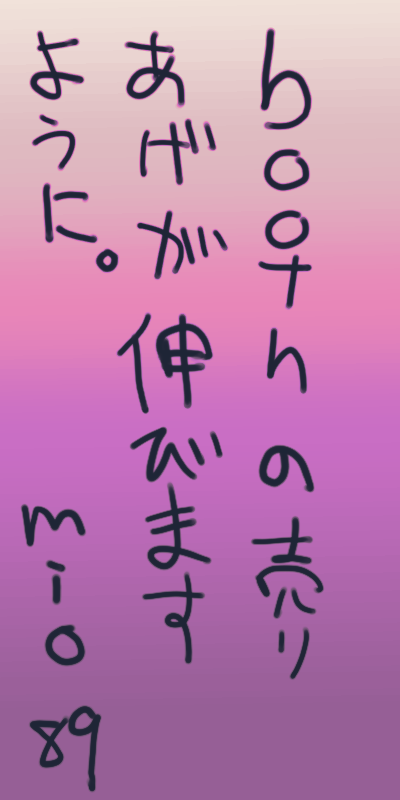 boothの売り
あげが伸びます
ように。
mio89